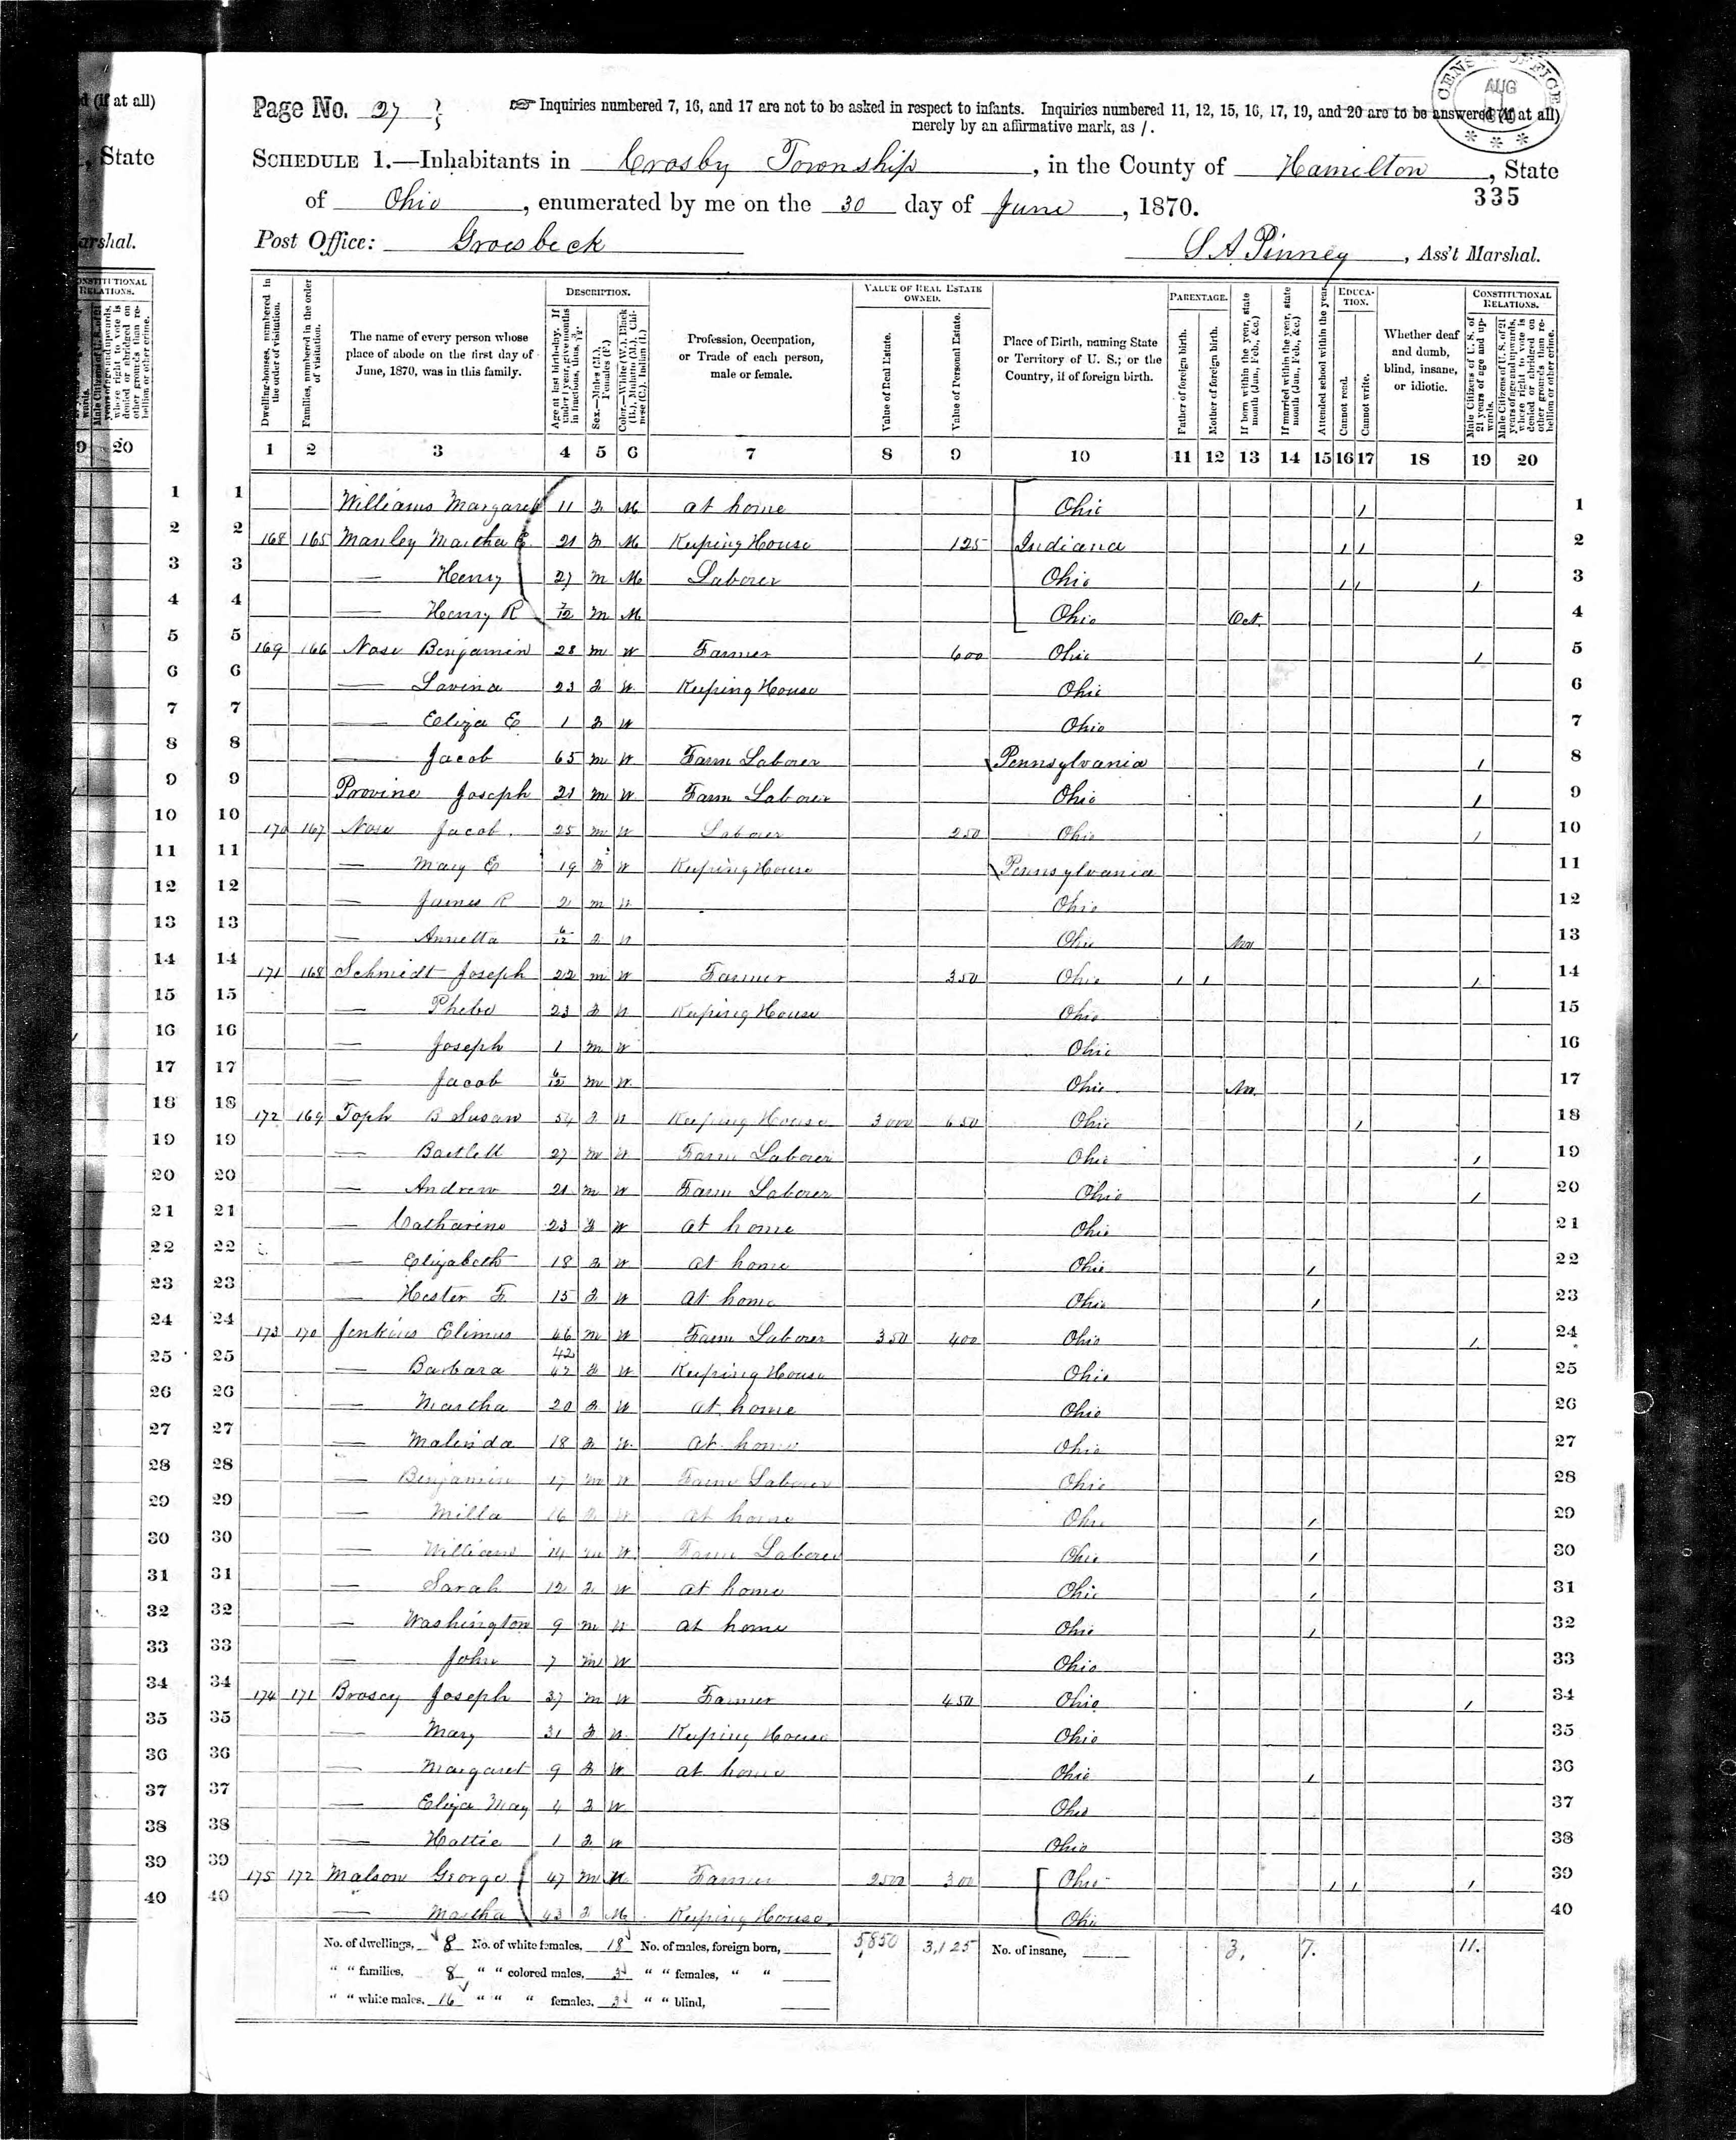 d (if at all)
, State
arshal.
CONSTITUTIONAL RELATIONS.
9 20
Page No. 27
☞ Inquiries numbered 7, 16, and 17 are not to be asked in respect to infants. Inquiries numbered 11, 12, 15, 16, 17, 19, and 20 are to be answered (if at all)
merely by an affirmative mark, as /.
CENSUS OFFICE AUG 1870
SCHEDULE 1.—Inhabitants in Crosby Township, in the County of Hamilton, State
335
of Ohio, enumerated by me on the 30 day of June, 1870.
Post Office: Groesbeck
S A Pinney, Ass't Marshal.
Dwelling-houses, numbered in the order of visitation.
Families, numbered in the order of visitation.
The name of every person whose place of abode on the first day of June, 1870, was in this family.
DESCRIPTION.
Age at last birth-day. If under 1 year, give months in fractions, thus, 3/12.
Sex.—Males (M.), Females (F.)
Color.—White (W.), Black (B.), Mulatto (M.), Chinese (C.), Indian (I.)
Profession, Occupation, or Trade of each person, male or female.
VALUE OF REAL ESTATE OWNED.
Value of Real Estate.
Value of Personal Estate.
Place of Birth, naming State or Territory of U. S.; or the Country, if of foreign birth.
PARENTAGE.
Father of foreign birth.
Mother of foreign birth.
If born within the year, state month (Jan., Feb., &c.)
If married within the year, state month (Jan., Feb., &c.)
Attended school within the year.
EDUCATION.
Cannot read.
Cannot write.
Whether deaf and dumb, blind, insane, or idiotic.
CONSTITUTIONAL RELATIONS.
Male Citizens of U. S. of 21 years of age and upwards.
Male Citizens of U. S. of 21 years of age and upwards, whose right to vote is denied or abridged on other grounds than rebellion or other crime.
1 2 3 4 5 6 7 8 9 10 11 12 13 14 15 16 17 18 19 20
1 Williams Margaret 11 F M at home Ohio / 1
2 168 165 Manley Martha E 21 F M Keeping House 125 Indiana / / 2
3 — Henry 27 M M Laborer Ohio / / / 3
4 — Henry R /12 M M Ohio Oct. 4
5 169 166 Nose Benjamin 28 M W Farmer 600 Ohio / 5
6 — Lavina 23 F W Keeping House Ohio 6
7 — Eliza E 1 F W Ohio 7
8 — Jacob 65 M W Farm Laborer Pennsylvania / 8
9 Provine Joseph 21 M W Farm Laborer Ohio / 9
10 170 167 Nose Jacob 25 M W Laborer 250 Ohio / 10
11 — Mary E 19 F W Keeping House Pennsylvania 11
12 — James R 2 M W Ohio 12
13 — Annetta 6/12 F W Ohio 13
14 171 168 Schmidt Joseph 22 M W Farmer 350 Ohio / / / 14
15 — Phebe 23 F W Keeping House Ohio 15
16 — Joseph 1 M W Ohio 16
17 — Jacob 6/12 M W Ohio 17
18 172 169 Toph B Susan 54 F W Keeping House 3000 650 Ohio / 18
19 — Bartlett 27 M W Farm Laborer Ohio / 19
20 — Andrew 21 M W Farm Laborer Ohio / 20
21 — Catharine 23 F W at home Ohio 21
22 — Elizabeth 18 F W at home Ohio / 22
23 — Hester F. 15 F W at home Ohio / 23
24 173 170 Jenkins Elimus 46 M W Farm Laborer 350 400 Ohio / 24
25 — Barbara 42 42 F W Keeping House Ohio 25
26 — Martha 20 F W at home Ohio 26
27 — Malinda 18 F W at home Ohio 27
28 — Benjamin 17 M W Farm Laborer Ohio 28
29 — Milla 16 F W at home Ohio / 29
30 — William 14 M W Farm Laborer Ohio / 30
31 — Sarah 12 F W at home Ohio / 31
32 — Washington 9 M W at home Ohio / 32
33 — John 7 M W Ohio 33
34 174 171 Brosey Joseph 37 M W Farmer 450 Ohio / 34
35 — Mary 31 F W Keeping House Ohio 35
36 — Margaret 9 F W at home Ohio / 36
37 — Eliza May 4 F W Ohio 37
38 — Hattie 1 F W Ohio 38
39 175 172 Malson George 47 M M Farmer 2500 300 Ohio / / / 39
40 — Martha 43 F M Keeping House Ohio 40
No. of dwellings, 8 No. of white females, 18 No. of males, foreign born, 5850 3,125 No. of insane, 3, 7. 11.
" " families, 8 " " colored males, 3 " " females, " "
" " white males, 16 " " " females, 3 " " blind,